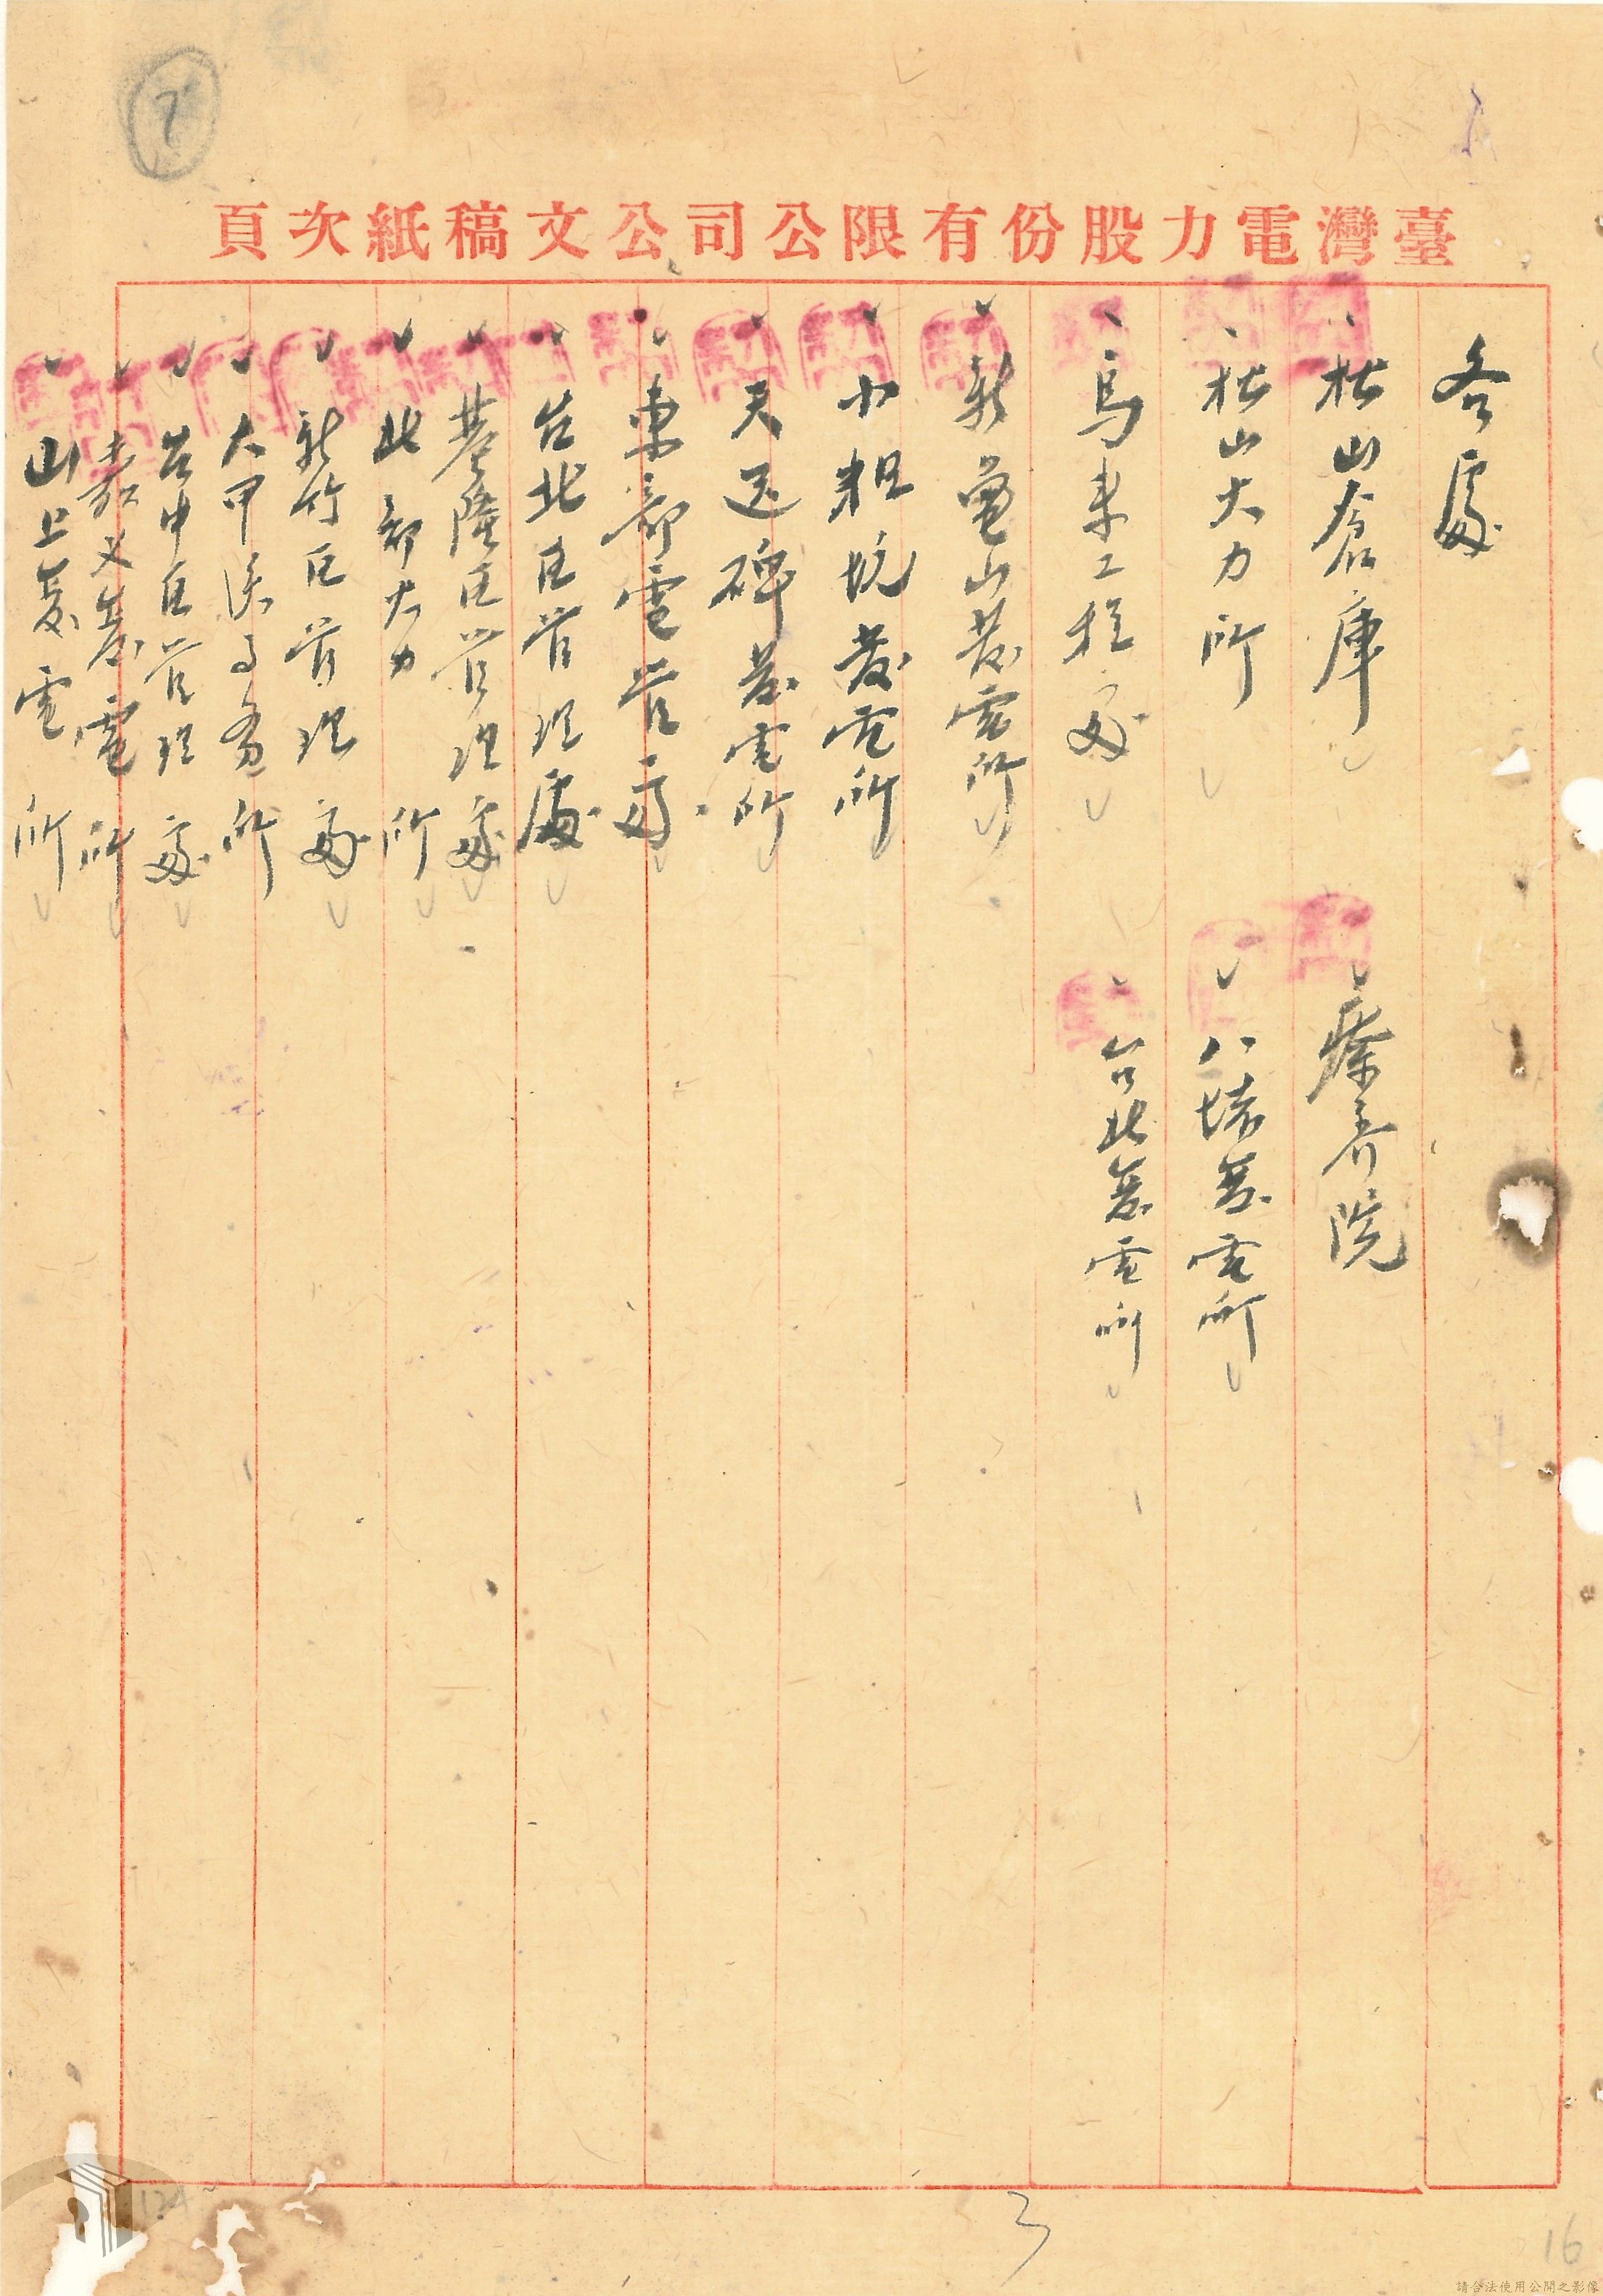 7
臺灣電力股份有限公司公文稿紙次頁
各處
松山倉庫
療养院
松山火力所
八堵發電所
烏来工程処
台北發電所
新龜山發電所
小粗坑發電所
天送碑發電所
東部電管處
台北區管理處
基隆區管理處
北部火力所
新竹區管理處
大甲溪事務所
台中區管理處
嘉义發電所
山上變電所
3
124
16
請合法使用公開之影像